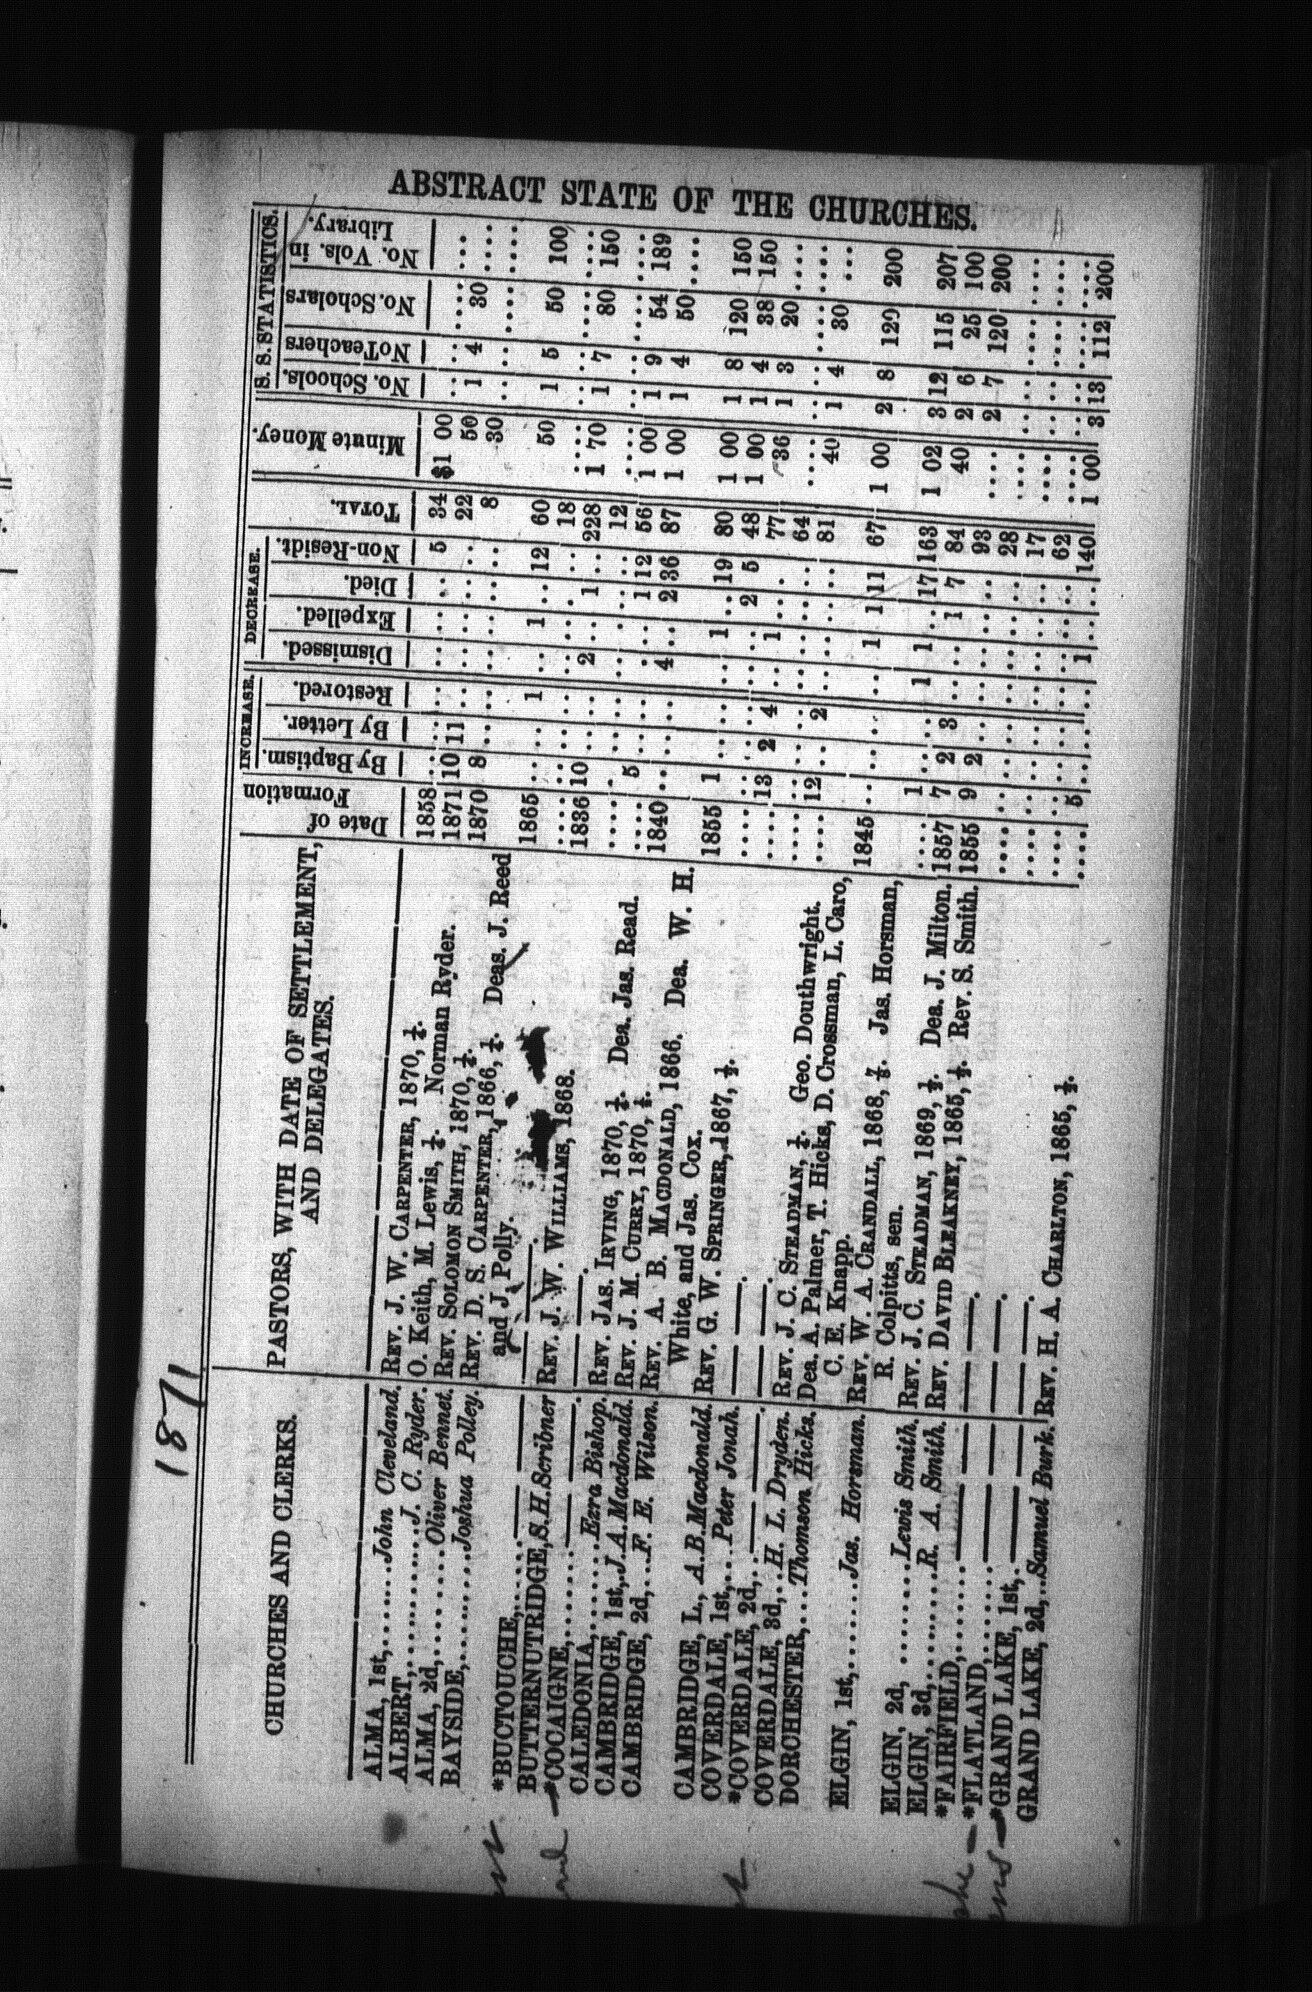 1871
ABSTRACT STATE OF THE CHURCHES.
CHURCHES AND CLERKS. PASTORS, WITH DATE OF SETTLEMENT, AND DELEGATES. Date of Formation INCREASE. By Baptism. By Letter. Restored. DECREASE. Dismissed. Expelled. Died. Non-Residt. TOTAL. Minute Money. S. S. STATISTICS. No. Schools. No Teachers No. Scholars No. Vols. in Library.
ALMA, 1st,......John Cleveland. REV. J. W. CARPENTER, 1870, ½. 1858 .. .. .. .. .. .. 5 34 $1 00 .. .. .... ...
ALBERT,.........J. C. Ryder. O. Keith, M. Lewis, ½. Norman Ryder. 1871 10 11 .. .. .. .. .. 22 50 1 4 30 ....
ALMA, 2d,.......Oliver Bennet. REV. SOLOMON SMITH, 1870, ½. 1870 8 .. .. .. .. .. .. 8 30 .. .. .... ....
BAYSIDE,........Joshua Polley. REV. D. S. CARPENTER, 1866, ½. Deas. J. Reed
and J. Polly. 1865 .. .. 1 .. 1 .. 12 60 50 1 5 50 100
*BUCTOUCHE,..... .... .. .. .. .. .. .. .. 18 .... .. .. .... ....
BUTTERNUTRIDGE, S. H. Scribner REV. J. W. WILLIAMS, 1868. 1836 10 .. .. 2 .. 1 .. 228 1 70 1 7 80 150
*COCAIGNE,........ .... .. .. .. .. .. .. .. 12 .... .. .. .... ....
CALEDONIA,.......Ezra Bishop. REV. JAS. IRVING, 1870, ½. Dea. Jas. Read. .... 5 .. .. .. .. 1 12 56 1 00 1 9 54 189
CAMBRIDGE, 1st,..J. A. Macdonald. REV. J. M. CURRY, 1870, ½. 1840 .. .. .. 4 .. 2 36 87 1 00 1 4 50 ....
CAMBRIDGE, 2d,...F. E. Wilson. REV. A. B. MACDONALD, 1866. Dea. W. H.
White, and Jas. Cox. 1855 1 .. .. .. 1 .. 19 80 1 00 1 8 120 150
CAMBRIDGE, L., A. B. Macdonald. REV. G. W. SPRINGER, 1867, ½. .... .. .. .. .. .. 2 5 48 1 00 1 4 38 150
COVERDALE, 1st,...Peter Jonah. .... 13 2 4 .. 1 .. .. 77 36 1 3 20 ....
*COVERDALE, 2d,.. .... .. .. .. .. .. .. .. 64 .... .. .. .... ....
COVERDALE, 3d,...H. L. Dryden. REV. J. C. STEADMAN, ½. Geo. Douthwright. .... 12 .. 2 .. .. .. .. 81 40 1 4 30 ...
DORCHESTER,....Thomson Hicks. Dea. A. Palmer, T. Hicks, D. Crossman, L. Caro,
C. E. Knapp. 1845 .. .. .. .. 1 1 11 67 1 00 2 8 120 200
ELGIN, 1st,.......Jas. Horsman. REV. W. A. CRANDALL, 1868, ⅞. Jas. Horsman,
R. Colpitts, sen. .... 1 .. .. 1 1 .. 17 163 1 02 3 12 115 207
ELGIN, 2d, .........Lewis Smith. REV. J. C. STEADMAN, 1869, ½. Dea. J. Milton. 1857 7 2 3 .. .. 1 7 84 40 2 6 25 100
ELGIN, 3d,.........R. A. Smith. REV. DAVID BLEAKNEY, 1865, ½. Rev. S. Smith. 1855 9 2 .. .. .. .. .. 93 .... 2 7 120 200
*FAIRFIELD,....... .... .. .. .. .. .. .. .. 28 .... .. .. .... ....
*FLATLAND,....... .... .. .. .. .. .. .. .. 17 .... .. .. .... ....
*GRAND LAKE, 1st,. .... .. .. .. .. .. .. .. 62 .... .. .. .... ....
GRAND LAKE, 2d,...Samuel Burk. REV. H. A. CHARLTON, 1865, ½. .... 5 .. .. .. 1 .. .. 140 1 00 3 13 112 200